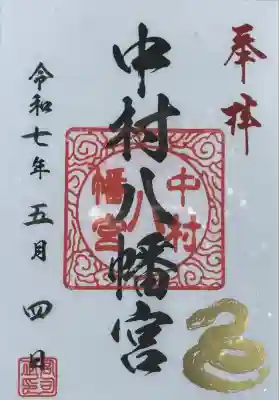 奉拝
中村八幡宮
中村
八
幡宮
令和七年 五月 四日